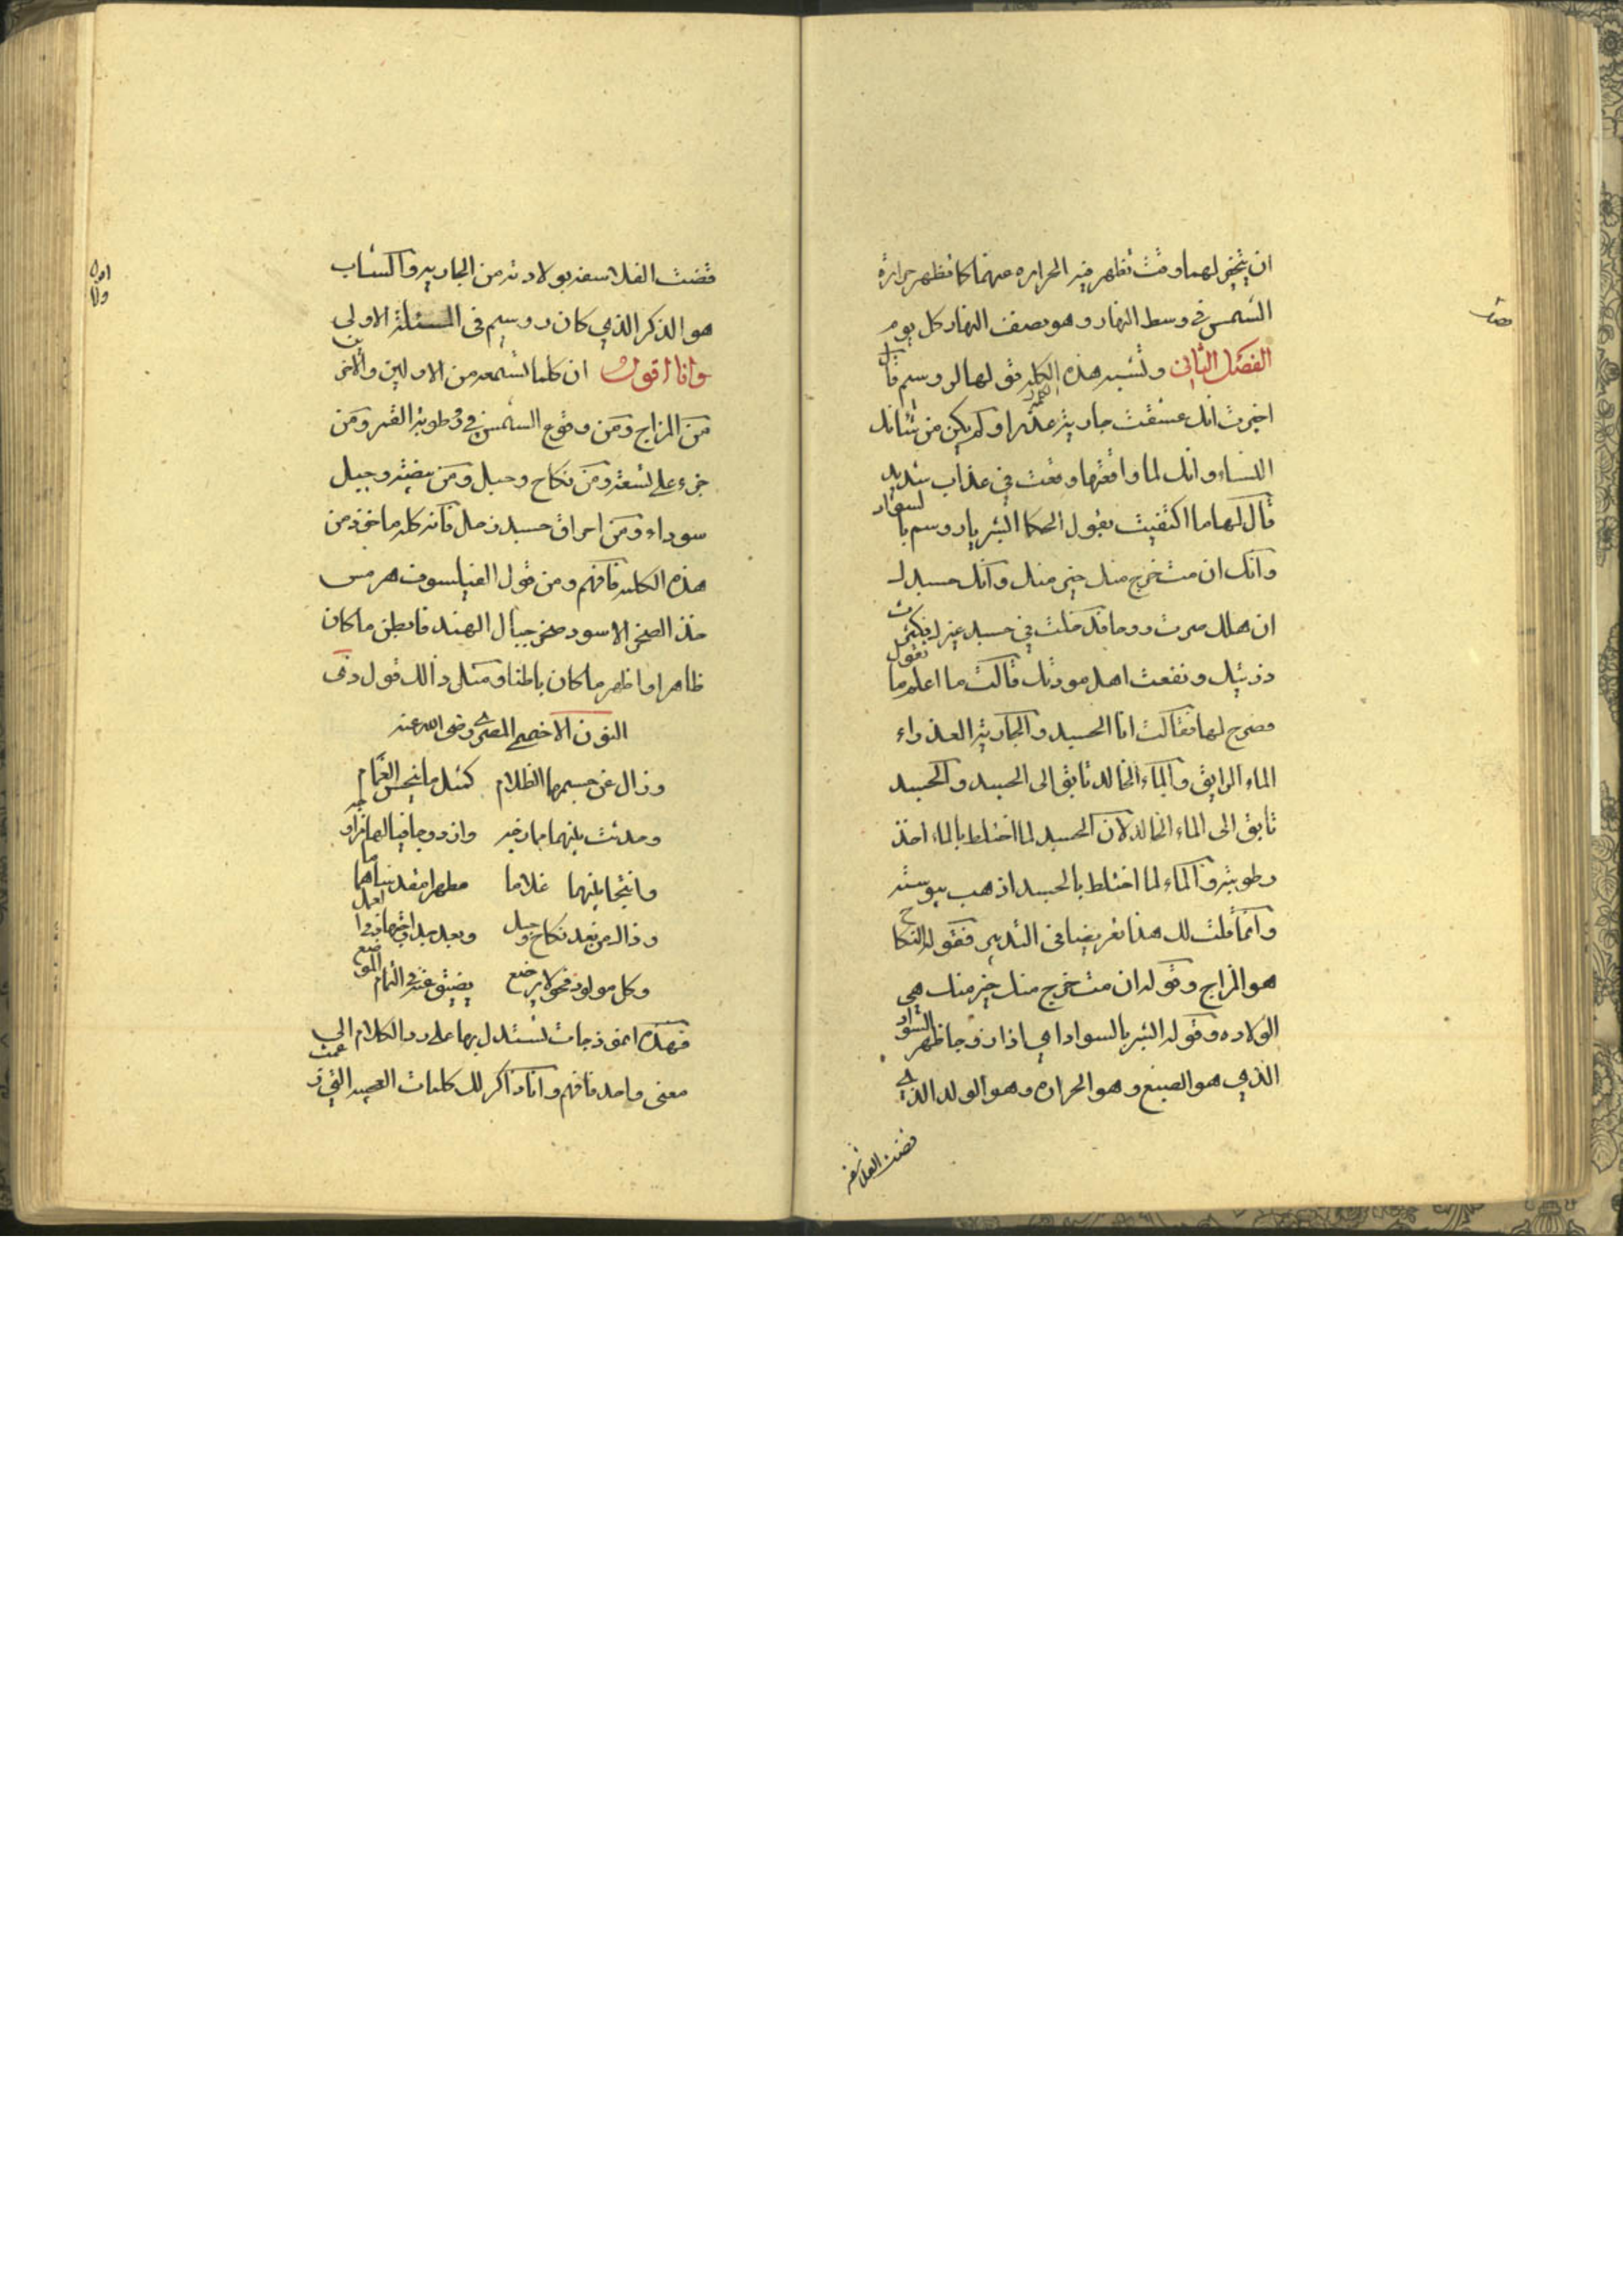 ان يتخير لهما وقت تظهر فيه الحراره عنهما كما تظهر حرارة
الشمس في وسط النهار وهو نصف النهار كل يوم
الفصل الثاني وتشبه هذه الكلمة قولها لروسيم قال
اخبرت انك عشقت جارية عذرا ولم يكن من شانك
النساء وانك لما واقعتها وقعت في عذاب شديد
قال لها ما اكتفيت بقول الحكما البشر يا روسم بالسواد
وانك ان مت خرج منك خير منك وانك جسدك
ان هلك صرت روحا قد دخلت في جسد غيرك
وزنيك ونفعت اهل مودتك قالت ما اعلم ما تقول
فصرح لها فقالت انا الجسد والجارية العذراء
الماء الرايق والماء الخالد تابق الى الجسد والجسد
تابق الى الماء الخالد لان الجسد لما اختلط بالماء اخذ
رطوبته والماء لما اختلط بالجسد اذهب يبوسته
وانما قلت لك هذا تعريضا في التدبير فقوله النكاح
هو المزاج وقوله ان مت خرج منك خير منك هي
الولاده وقوله البشر بالسواد اي اذا زوجا ظهر السواد
الذي هو الصبغ وهو الحراره وهو الولد الذي
قضت الفلاسفه
قضت الفلاسفه بولادته من الجاريه والشاب
هو الذكر الذي كان روسيم في المسئلة الاولى
وانا اقول ان كلما تسمعه من الاولين والاخرين
من المزاج ومن وقوع الشمس في رطوبة القمر ومن
جزء على تسعة ومن نكاح وحبل ومن بيضة وجبل
سوداء ومن احراق جسد زحل فانه كله ماخوذ من
هذه الكلمه فافهم ومن قول الفيلسوف هرمس
خذ الصخر الاسود صخر جبال الهند فابطن ما كان
ظاهرا واظهر ما كان باطنا ومثل ذالك قول ذي
النون الاخميمي المصري رضي الله عنه
وزال عن جسمها الظلام كمثل ما ينجس الغمام
وحدثت بينهما وازدوجا
وانتجا بينهما غلاما مطهرا
وذاك من بعد نكاح وحبل وبعد
وكل مولود فحولا يرضع
فهذه انموذجات تستدل بها على رد الكلام الى
معنى واحد فافهم وانا ذاكر لك كلمات العجيبه التي